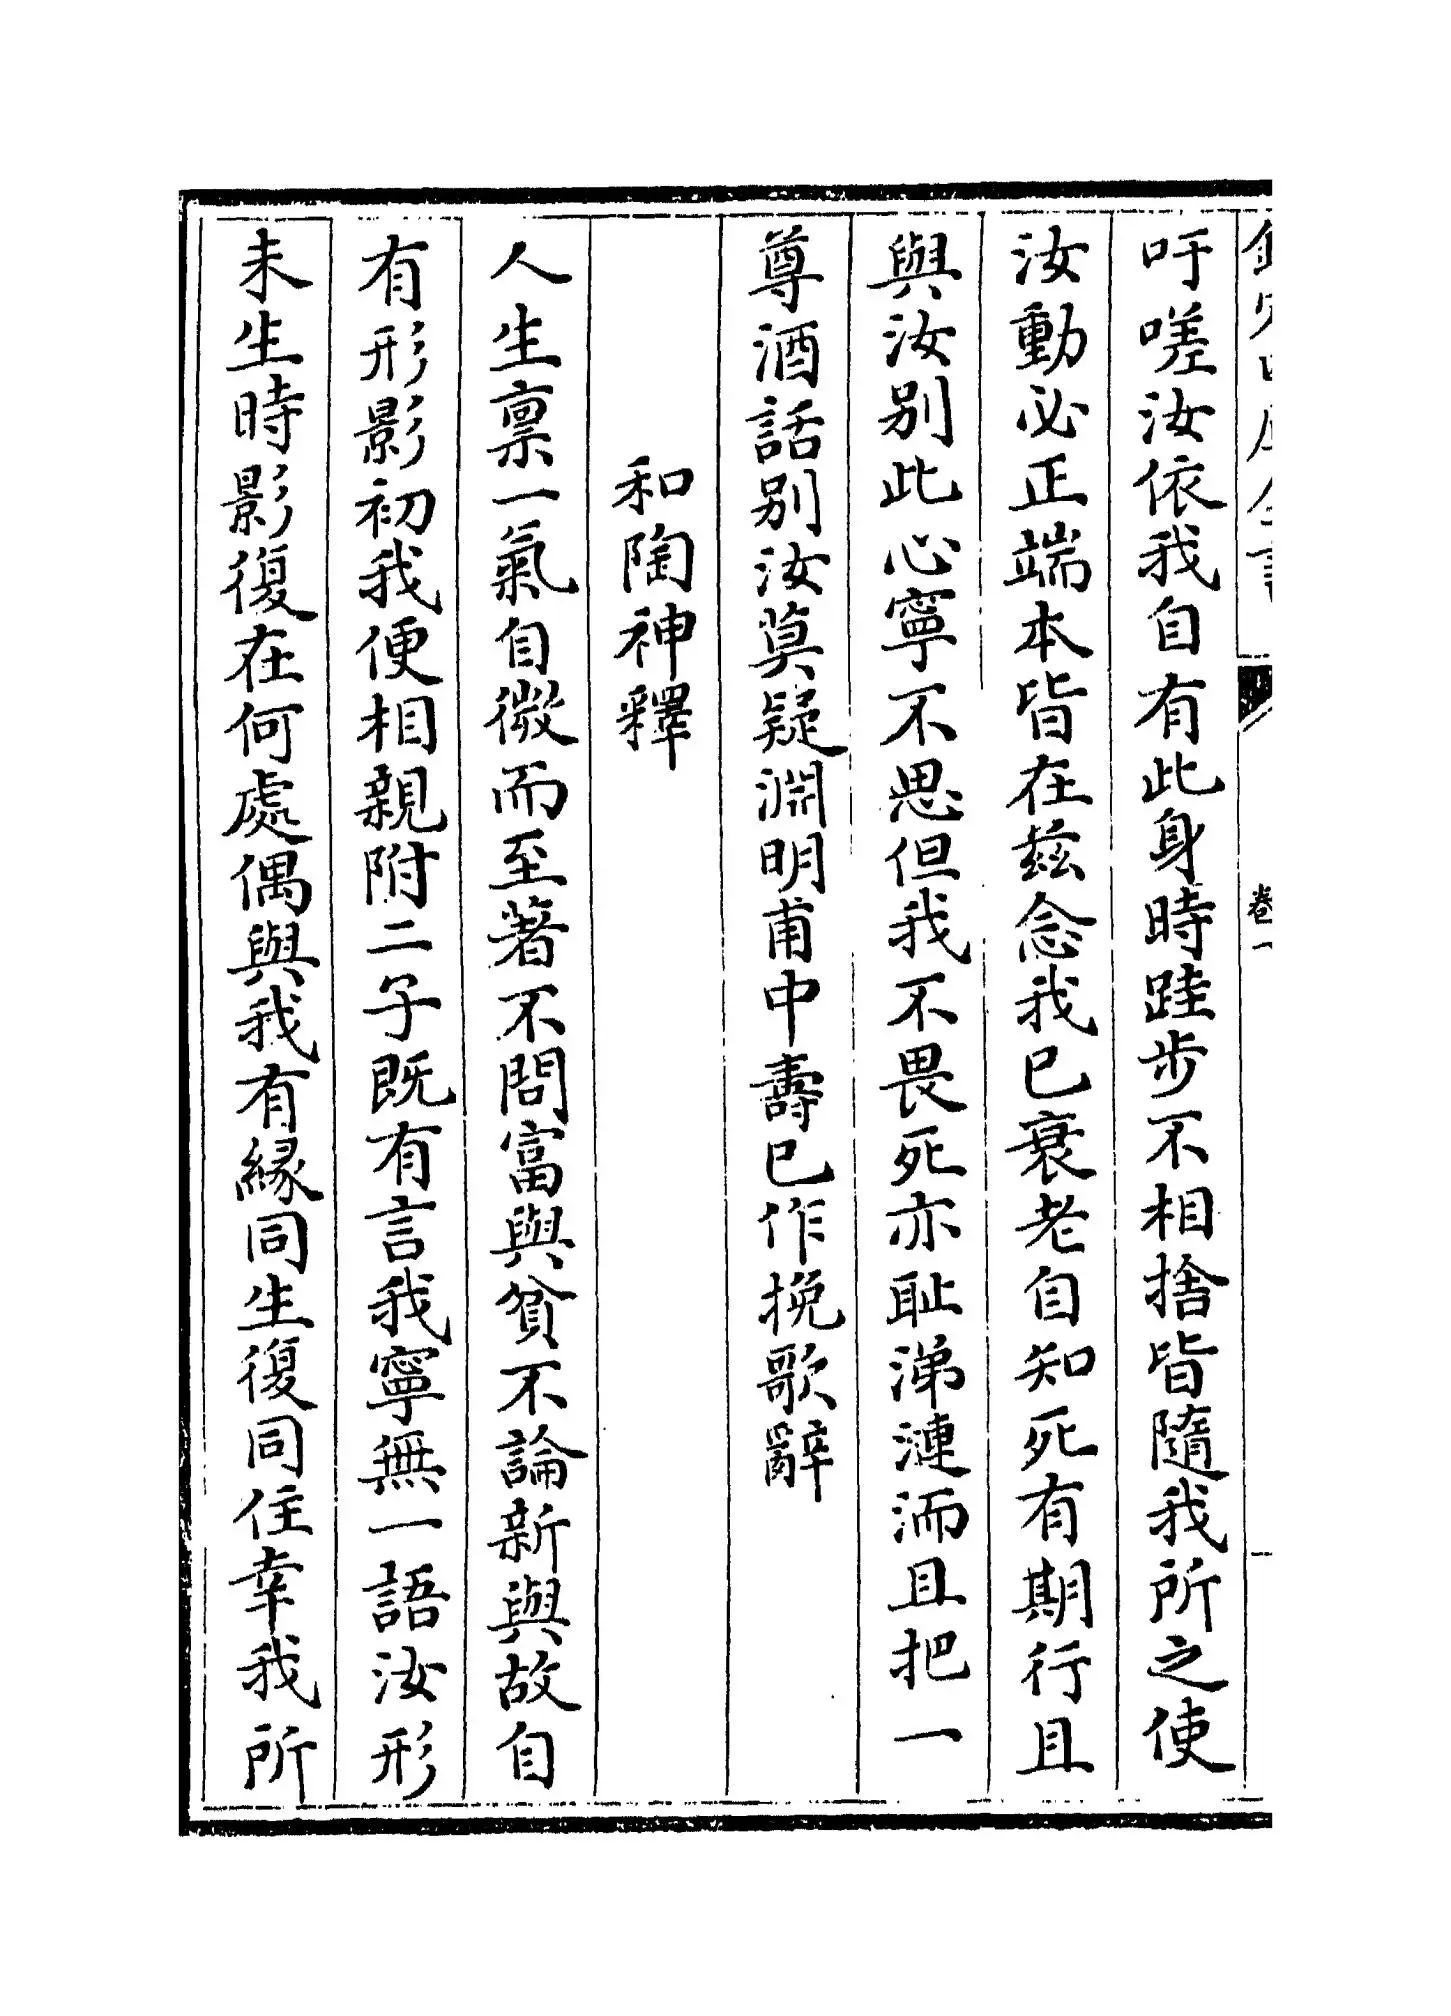 欽定四庫全書 卷一
吁嗟汝依我自有此身時跬步不相捨皆隨我所之使
汝動必正端本皆在兹念我已衰老自知死有期行且
與汝别此心寧不思但我不畏死亦耻涕漣洏且把一
尊酒話别汝莫疑淵明甫中壽已作挽歌辭
和陶神釋
人生禀一氣自微而至著不問富與貧不論新與故自
有形影初我便相親附二子既有言我寧無一語汝形
未生時影復在何處偶與我有緣同生復同住幸我所